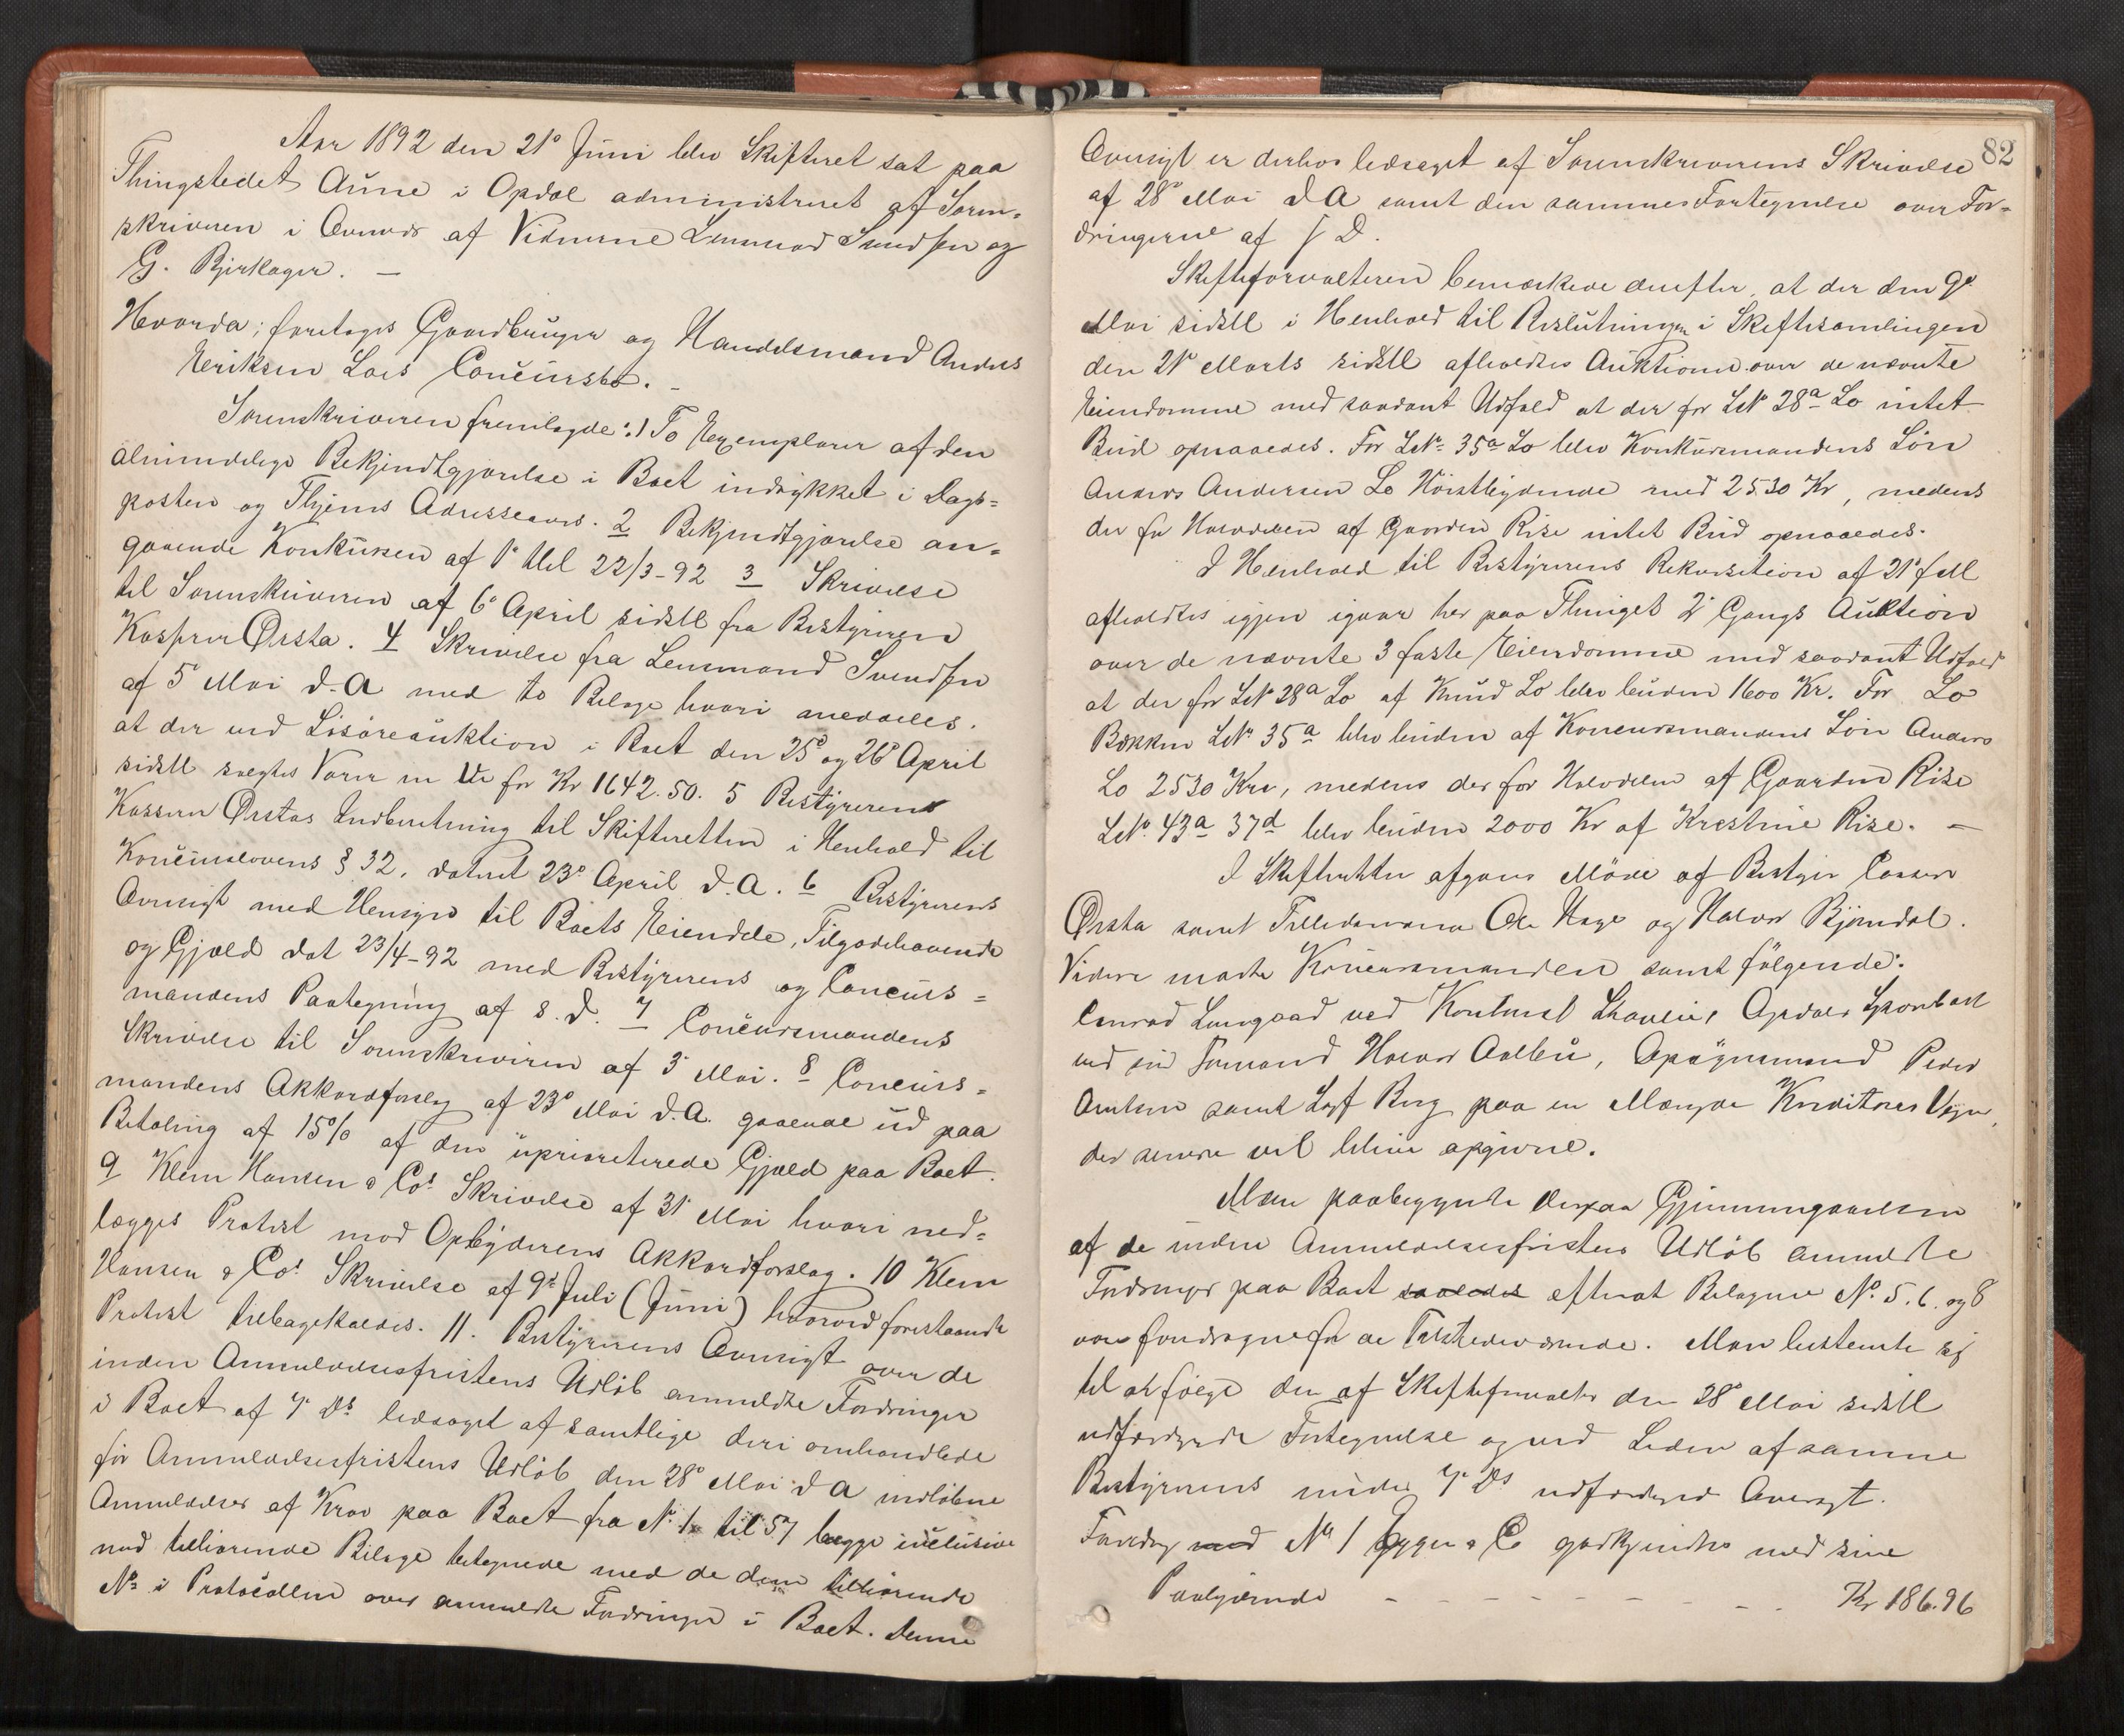 Aar 1892 den 21º Juni blev Skifteret sat paa
Thingstedet Aune i Opdal administreret af Soren-
skriveren i Overvær af Vidnerne Lensmand Svendsen og
G. Birkager. —
Hvorda: foretoges Gaardbruger og Handelsmand Anders
Eriksen Loes Concursbo. —
Sorenskriveren fremlagde: 1 To Exemplarer af den
almindelige Bekjendtgjørelse i Boet indrykket i Dags-
posten og Thjems Adresseavis. 2 Bekjendtgjørelse an-
gaaende Konkursen af 22/3-92 3 Skrivelse
til Sorenskriveren af 6º April sidstl fra Bestyreren
Kasserer Ørsta. 4 Skrivelse fra Lensmand Svendsen
af 5 Mai d.A med to Bilage hvori meddeles.
at der ved Løsøreauktion i Boet den 25º og 26º April
sidstl solgtes Varer m v for Kr 1642.50. 5 Bestyrerens
Kasserer Ørstas Indberetning til Skifteretten i Henhold til
Concurslovens § 32, dateret 23º April d.A. 6 Bestyrerens
Oversigt med Hensyn til Boets Eiendele, Tilgodehavende
og Gjæld dat 23/4-92 med Bestyrerens og Concurs-
mandens Paategning af s. D. 7 Concursmandens
Skrivelse til Sorenskriveren af 3 Mai. 8 Concurs-
mandens Akkordforslag af 23º Mai d.A. gaaende ud paa
Betaling af 15% af den uprioriterede Gjæld paa Boet.
9 Klem Hansen & Cos Skrivelse af 31 Mai hvori ned-
lægges Protest mod Opbyderens Akkordforslag. 10 Klem
Hansen & Cos Skrivelse af 9d Juli (Juni) hvorved forestaaende
Protest tilbagekaldes. 11. Bestyrerens Oversigt over de
inden Anmeldelsesfristens Udløb anmeldte Fordringer
i Boet af 7 Ds ledsaget af samtlige deri omhandlede
før Anmeldelsesfristens Udløb den 28º Mai d A indløbne
Anmeldelser af Krav paa Boet fra Nº 1 til 57 begge inclusive
med tilhørende Bilage betegnede med de dem tilhørende
Nº i Protocollen over anmeldte Fordringer i Boet. Denne
82
Oversigt er derhos ledsaget af Sorenskriverens Skrivelse
af 28º Mai d A samt den sammes Fortegnelse over For-
dringerne af s D.
Skifteforvalteren bemærkede derefter, at der den 9º
Mai sidstl i Henhold til Beslutningen i Skiftesamlingen
den 21º Marts sidstl afholdtes Auktioner over de nævnte
Eiendomme med saadant Udfald at der for LNº 28a Lo intet
Bud opnaaedes. For LNº 35a Lo blev Konkursmandens Søn
Anders Andersen Lo Høistbydende med 2530 Kr, medens
der for Halvdelen af Gaarden Rise intet Bud opnaaedes.
I Henhold til Bestyrerens Rekvisition af 21º f M
afholdtes igjen igaar her paa Thinget 2º Gangs Auktion
over de nævnte 3 faste Eiendomme med saadant Udfald
at der for LNº 28a Lo af Knud Lo blev buden 1600 Kr. For Lo
Bækken LNº 35a blev buden af Koncursmandens Søn Anders
Lo 2530 Kr, medens der for Halvdelen af Gaarden Rise
LNº 43a 37d blev buden 2000 Kr af Krestine Rise. —
I Skifteretten afgav Møde af Bestyrer Casserer
Ørsta samt Tillidsmænd Ole Hage og Halvor Bjørndal.
Videre mødte Koncursmanden samt følgende:
Conrad Lungaad ved Opdals Sparebank
ved sin Formand Halvor Aalbu, Opsynsmand Peder
samt Sagf Berg paa en Mængde Kreditorers Vegne,
der senere vil blive opgivne.
Man paabegyndte derpaa Gjennemgaaelsen
af de inden Anmeldelsesfristens Udløb anmeldte
Fordringer paa Boet saaledes efterat Bilagene Nº 5. 6. og 8
var foredragne for de Tilstedeværende. Man bestemte sig
til at følge den af Skifteforvalter den 28º Mai sidstl
udfærdigede Fortegnelse og ved Siden af samme
Bestyrerens under 7 Ds udfærdiged Oversigt.
Fordring med Nº 1 Bygge & Co godkjendtes med sine
Paalydende - - - - - - - - - Kr 186.96